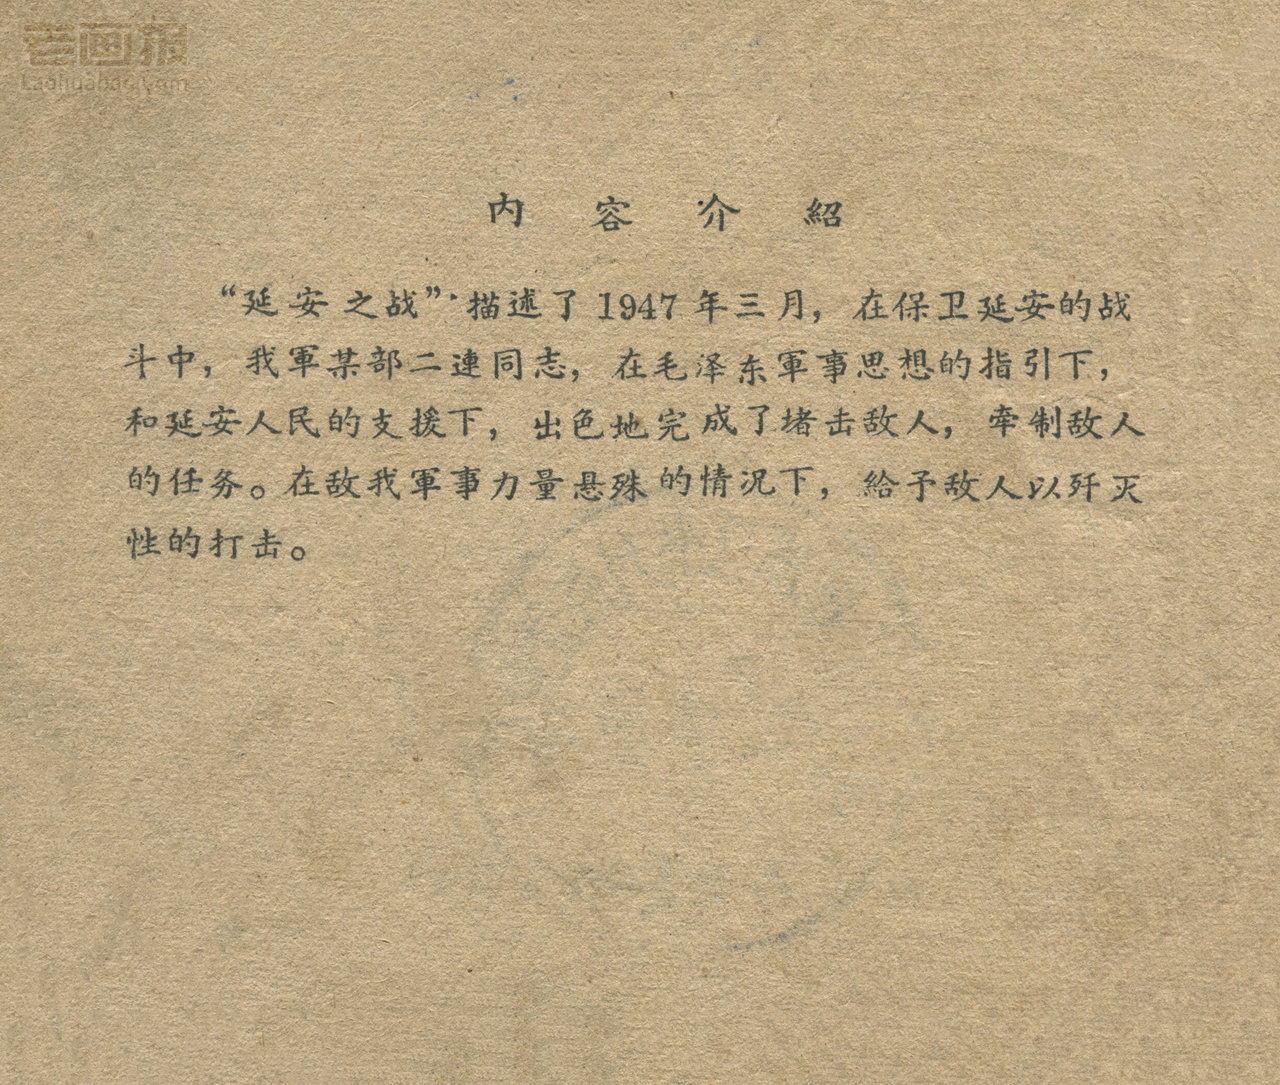 老画报
Laohuabao.com
内容介紹
“延安之战”描述了1947年三月，在保卫延安的战
斗中，我軍某部二連同志，在毛泽东軍事思想的指引下，
和延安人民的支援下，出色地完成了堵击敌人，牵制敌人
的任务。在敌我軍事力量悬殊的情况下，給予敌人以歼灭
性的打击。